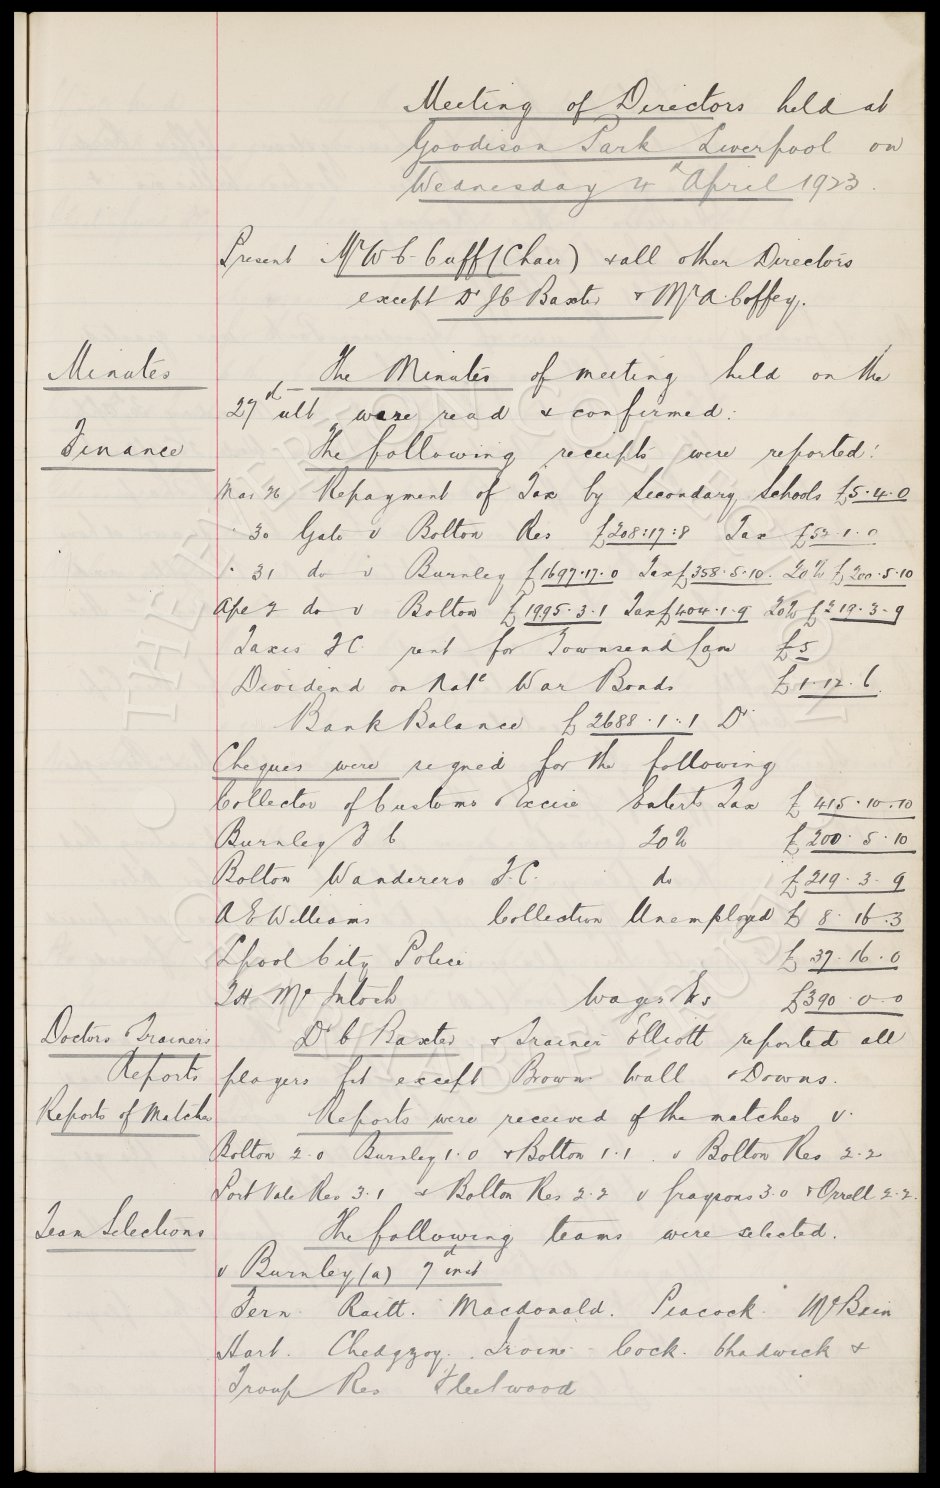 Meeting of Directors held at
Goodison Park Liverpool on
Wednesday 4th April 1923.
Present Mr W C Cuff (Chair) & all other Directors
except Dr J C Baxter & Mr A. Coffey.
Minutes
The Minutes of meeting held on the
27th ult were read & confirmed:
Finance
The following receipts were reported:
Mar 26 Repayment of Tax by Secondary Schools £5.4.0
" 30 Gate v Bolton Res £208:17:8 Tax £52.1.0
" 31 do v Burnley £1697.17.0 Tax £358.5.10. 20% £200.5.10
Apl 2 do v Bolton £1995.3.1 Tax £404.1.9 20% £219.3.9
Taxis F.C. rent for Townsend Lane £5
Dividend on Natl War Bonds £1.12.6.
Bank Balance £2688.1.1 Dr
Cheques were signed for the following
Collector of Customs & Excise Enterts Tax £415.10.10
Burnley F C 20% £200.5.10
Bolton Wanderers F.C. do £219.3.9
A E Williams Collection Unemployed £8.16.3
Lpool City Police £37.16.0
T H McIntosh Wages &s £390.0.0
Doctors & Trainers
Reports
Dr C Baxter & Trainer Elliott reported all
players fit except Brown Wall & Downs.
Reports of Matches
Reports were received of the matches v.
Bolton 2.0 Burnley 1.0 & Bolton 1.1. v Bolton Res 2.2
Port Vale Res 3.1 & Bolton Res 2.2 v Graysons 3.0 & Orrell 2.2.
Team Selections
The following teams were selected.
v Burnley (a) 7th inst
Fern. Raitt. Macdonald. Peacock. McBain
Hart. Chedgzoy. Irvine. Cock. Chadwick &
Troup Res Fleetwood
THE EVERTON COLLECTION